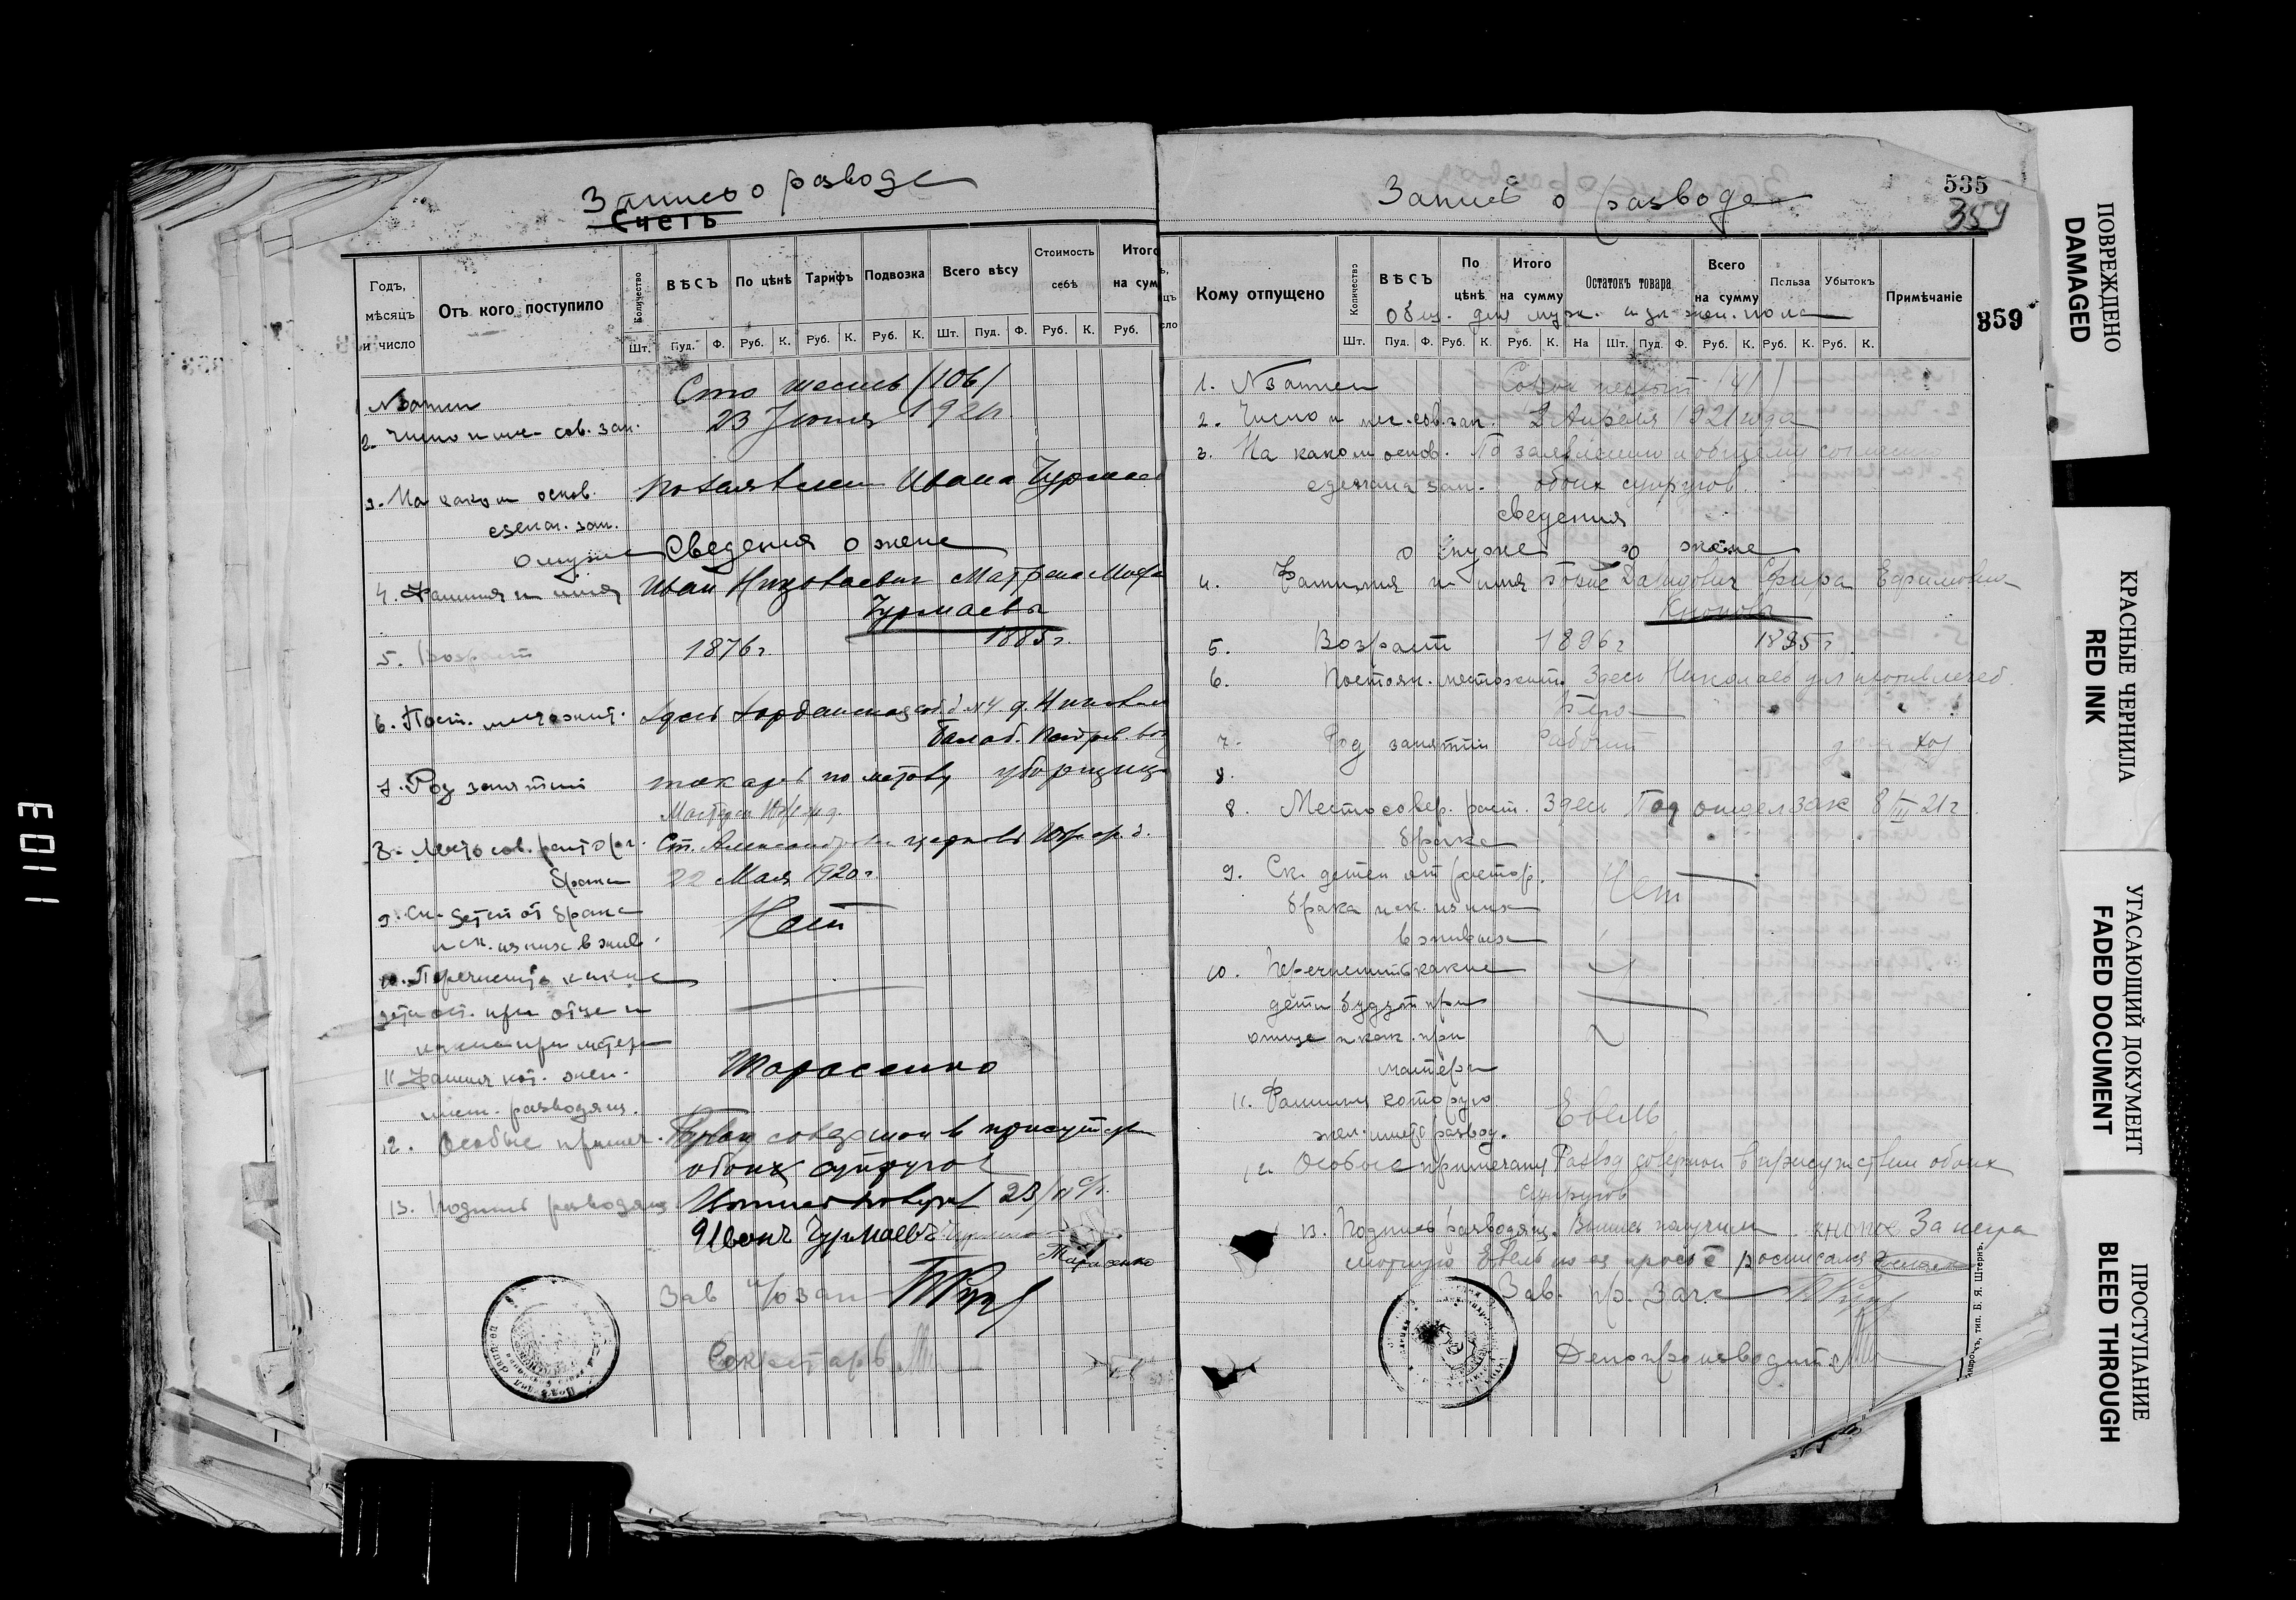 Запись о разводе
Счетъ
Годъ, мѣсяцъ и число
Отъ кого поступило
Количество
ВѢСЪ
По цѣнѣ
Тарифъ
Подвозка
Всего вѣсу
Стоимость себѣ
Итого на сум
Шт. Пуд. Ф. Руб. К. Руб. К. Руб. К. Шт. Пуд. Ф. Руб. К. Руб.
1 № записи Сто шесть (106)
2. Число и мес. сов. зап. 23 Июня 1921 г.
3. На каком основ. Ивана Чурмаев
сделан. зап.
О муже Сведения о жене
4. Фамилия и имя Иван Матрена
Чурмаевы
5. Возраст 1876 г. 1885 г.
6. Пост. местожит.
7. Род занятий токарь по уборщиц
8. Место сов. расторг. Ст. церковь
брака 22 Мая 1920 г.
9. Ск. детей от брака Нет
и ск. из них в жив.
10. Перечислить какие
дети ост. при отце и
какие при матери
11 Фамил. кот. жен. Тарасенко
имет. разводящ.
12. Особые примеч. Развод совершон в присутств
обоих супругов
13. Подпись разводящ. 23/VI
Иванъ Чурмаевъ
Тарасенко
Зав. п/о зап
Секретарь
Запись о разводе
535
359
Кому отпущено
Количество
ВѢСЪ
По цѣнѣ
Итого на сумму
Остатокъ товара
Всего на сумму
Польза
Убытокъ
Примѣчаніе
859
Общ. для муж. и для жен. пола
Шт. Пуд. Ф. Руб. К. Руб. К. На Шт. Пуд. Ф. Руб. К. Руб. К. Руб. К.
1. № записи Сорок первый (41)
2. Число и мес. сов. зап. 2 Апреля 1921 года
3. На каком основ. По заявлению и общему согласию
сделана зап. обоих супругов.
Сведения
о муже о жене
4. Фамилия и имя Борис Давидович Сфира Ефимовна
Кноповы
5. Возраст 1896 г 1895 г
6. Постоян. местожит. Здесь Николаев
7. Род занятий Рабочий
8.
8. Место совер. раст. Здесь Подотдел зак 8/III 21 г.
брака
9. Ск. детей от растор. Нет
брака и ск. из них
в живых
10. Перечислить какие
дети будут при
отце и как. при
матери
11. Фамилия которую Евель
жен. имеет развод.
12. Особые примечан Развод совершон в присутствии обоих
супругов
13. Подпись разводящ. Выпись получили кнопов За негра
мотную Евель по ея просьбе росписался
Зав. п/о. Загс
Делопроизводит
тип. Б. Я. Штернъ.
ПОВРЕЖДЕНО
DAMAGED
КРАСНЫЕ ЧЕРНИЛА
RED INK
УГАСАЮЩИЙ ДОКУМЕНТ
FADED DOCUMENT
ПРОСТУПАНИЕ
BLEED THROUGH
E011